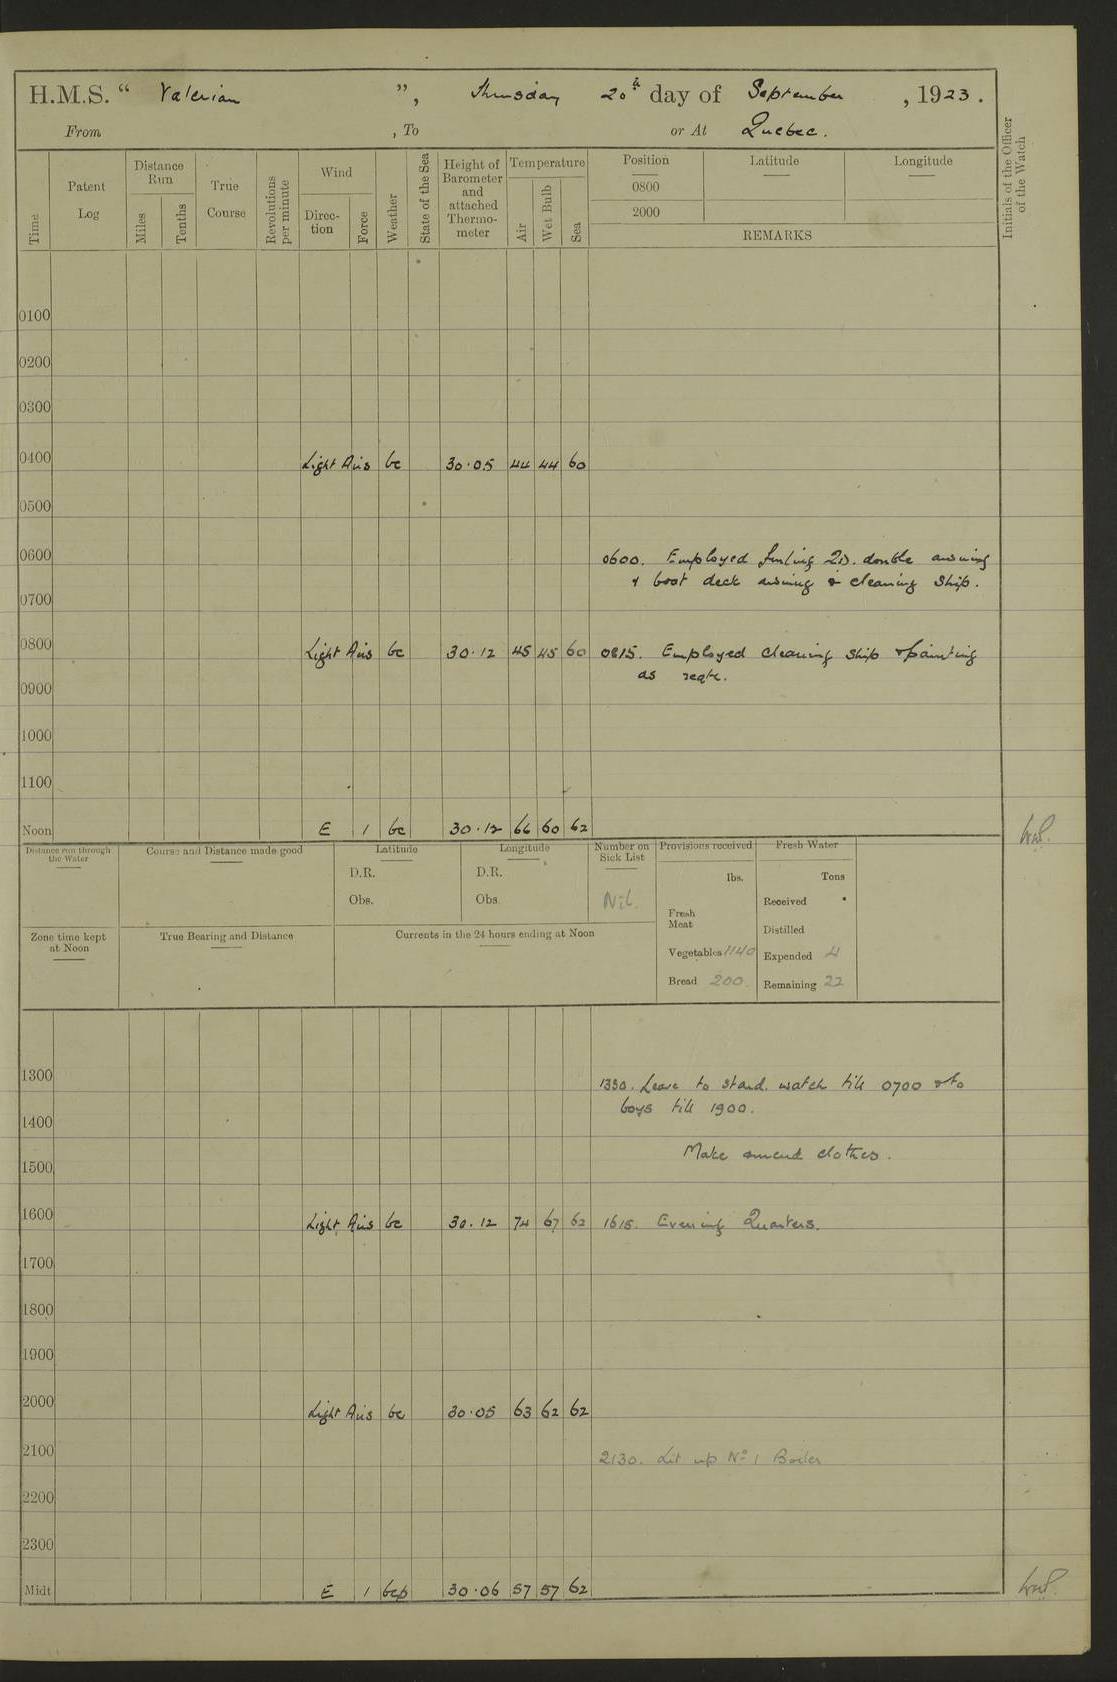 H.M.S. “ Valerian ”, Thursday 20th day of September , 1923.
From , To or At Quebec.
Time
Patent Log
Distance Run
Miles
Tenths
True Course
Revolutions per minute
Wind
Direction
Force
Weather
State of the Sea
Height of Barometer and attached Thermometer
Temperature
Air
Wet Bulb
Sea
Position Latitude Longitude
0800
2000
REMARKS
Initials of the Officer of the Watch
0100
0200
0300
0400 Light Airs bc 30.05 44 44 60
0500
0600 0600. Employed furling QD. double awning
& boat deck awning & cleaning ship.
0700
0800 Light Airs bc 30.12 45 45 60 0815. Employed cleaning ship & painting
as reqte.
0900
1000
1100
Noon E 1 bc 30.12 66 60 62
Distance run through the Water
Course and Distance made good
Latitude
D.R.
Obs.
Longitude
D.R.
Obs.
Number on Sick List
Nil.
Provisions received
lbs.
Fresh Meat
Vegetables 1140
Bread 200
Fresh Water
Tons
Received
Distilled
Expended 4
Remaining 22
Zone time kept at Noon
True Bearing and Distance
Currents in the 24 hours ending at Noon
1300 1330. Leave to stard. watch till 0700 & to
boys till 1900.
1400
Make & mend clothes.
1500
1600 Light Airs bc 30.12 74 67 62 1615. Evening Quarters.
1700
1800
1900
2000 Light Airs bc 30.05 63 62 62
2100 2130. Lit up No 1 Boiler
2200
2300
Midt E 1 bcp 30.06 57 57 62